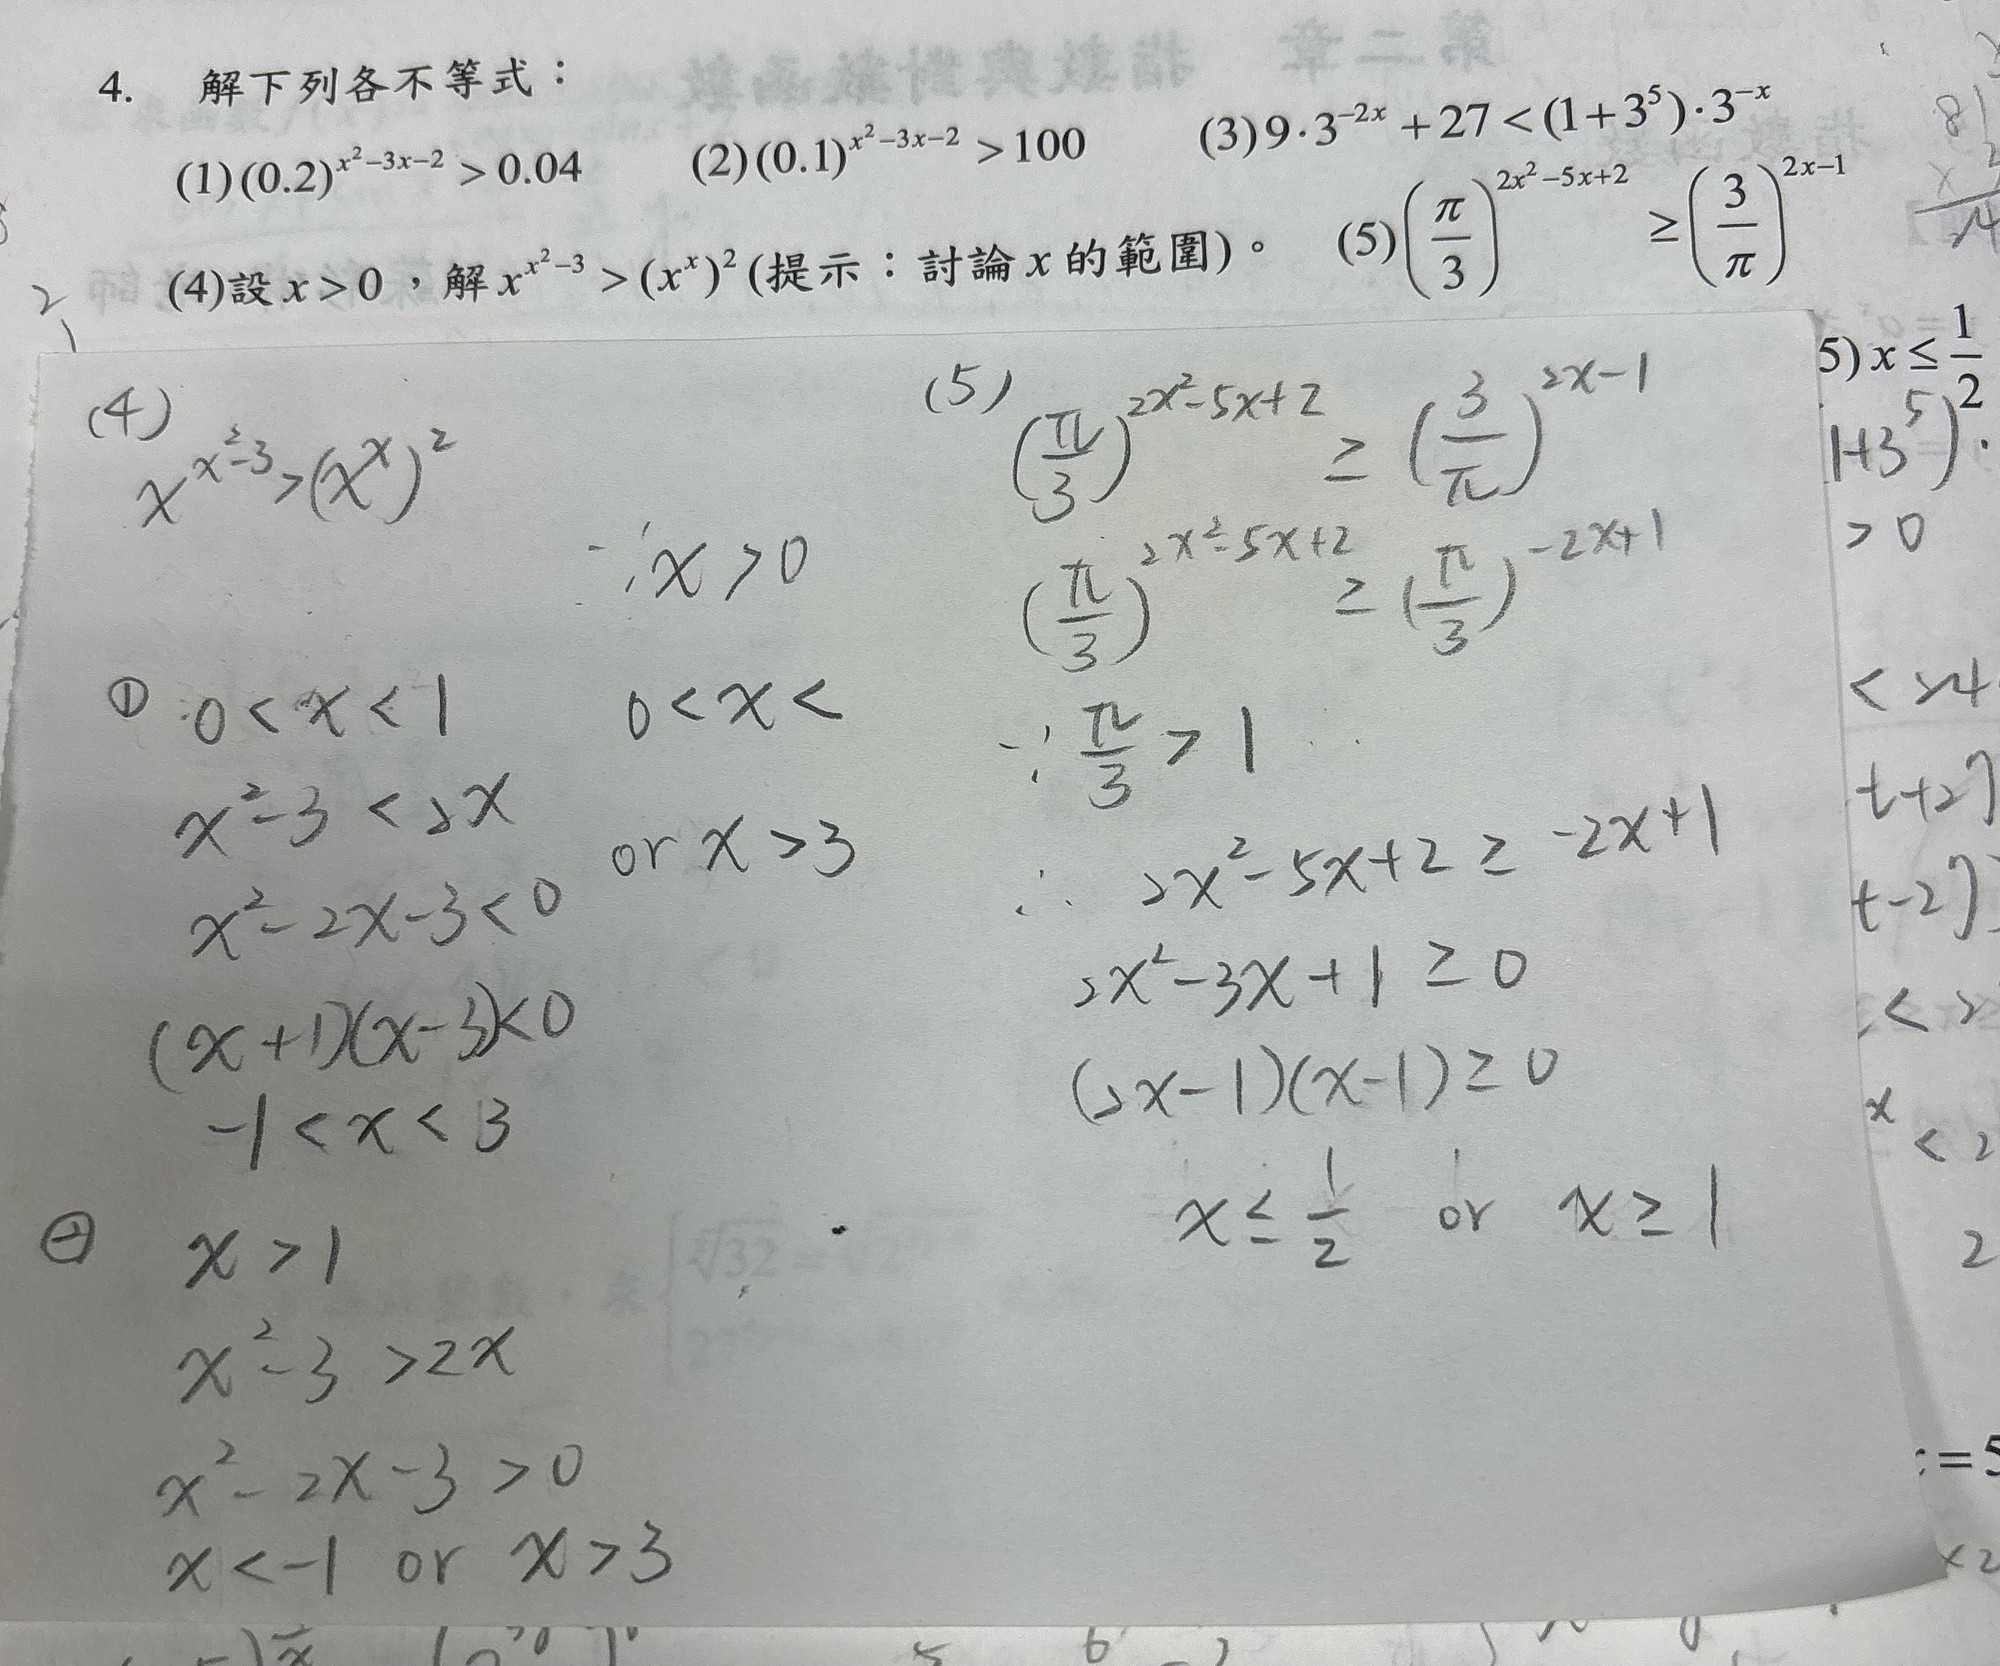 4. 解下列各不等式：
(1)(0.2)^{x²-3x-2} > 0.04 (2)(0.1)^{x²-3x-2} > 100 (3)9·3^{-2x} + 27 < (1+3⁵)·3^{-x}
(4)設 x > 0，解 x^{x²-3} > (x^x)² (提示：討論 x 的範圍)。 (5)(π/3)^{2x²-5x+2} ≥ (3/π)^{2x-1}
5) x ≤ 1/2
(4)
x^{x²-3} > (x^x)²
∵ x > 0
① 0 < x < 1
x²-3 < 2x
x²-2x-3 < 0
(x+1)(x-3) < 0
-1 < x < 3
0 < x <
or x > 3
② x > 1
x²-3 > 2x
x²-2x-3 > 0
x < -1 or x > 3
(5)
(π/3)^{2x²-5x+2} ≥ (3/π)^{2x-1}
(π/3)^{2x²-5x+2} ≥ (π/3)^{-2x+1}
∵ π/3 > 1
∴ 2x²-5x+2 ≥ -2x+1
2x²-3x+1 ≥ 0
(2x-1)(x-1) ≥ 0
x ≤ 1/2 or x ≥ 1
1+3⁵)²
> 0
t+2)
t-2)
x < 2
2
= 5